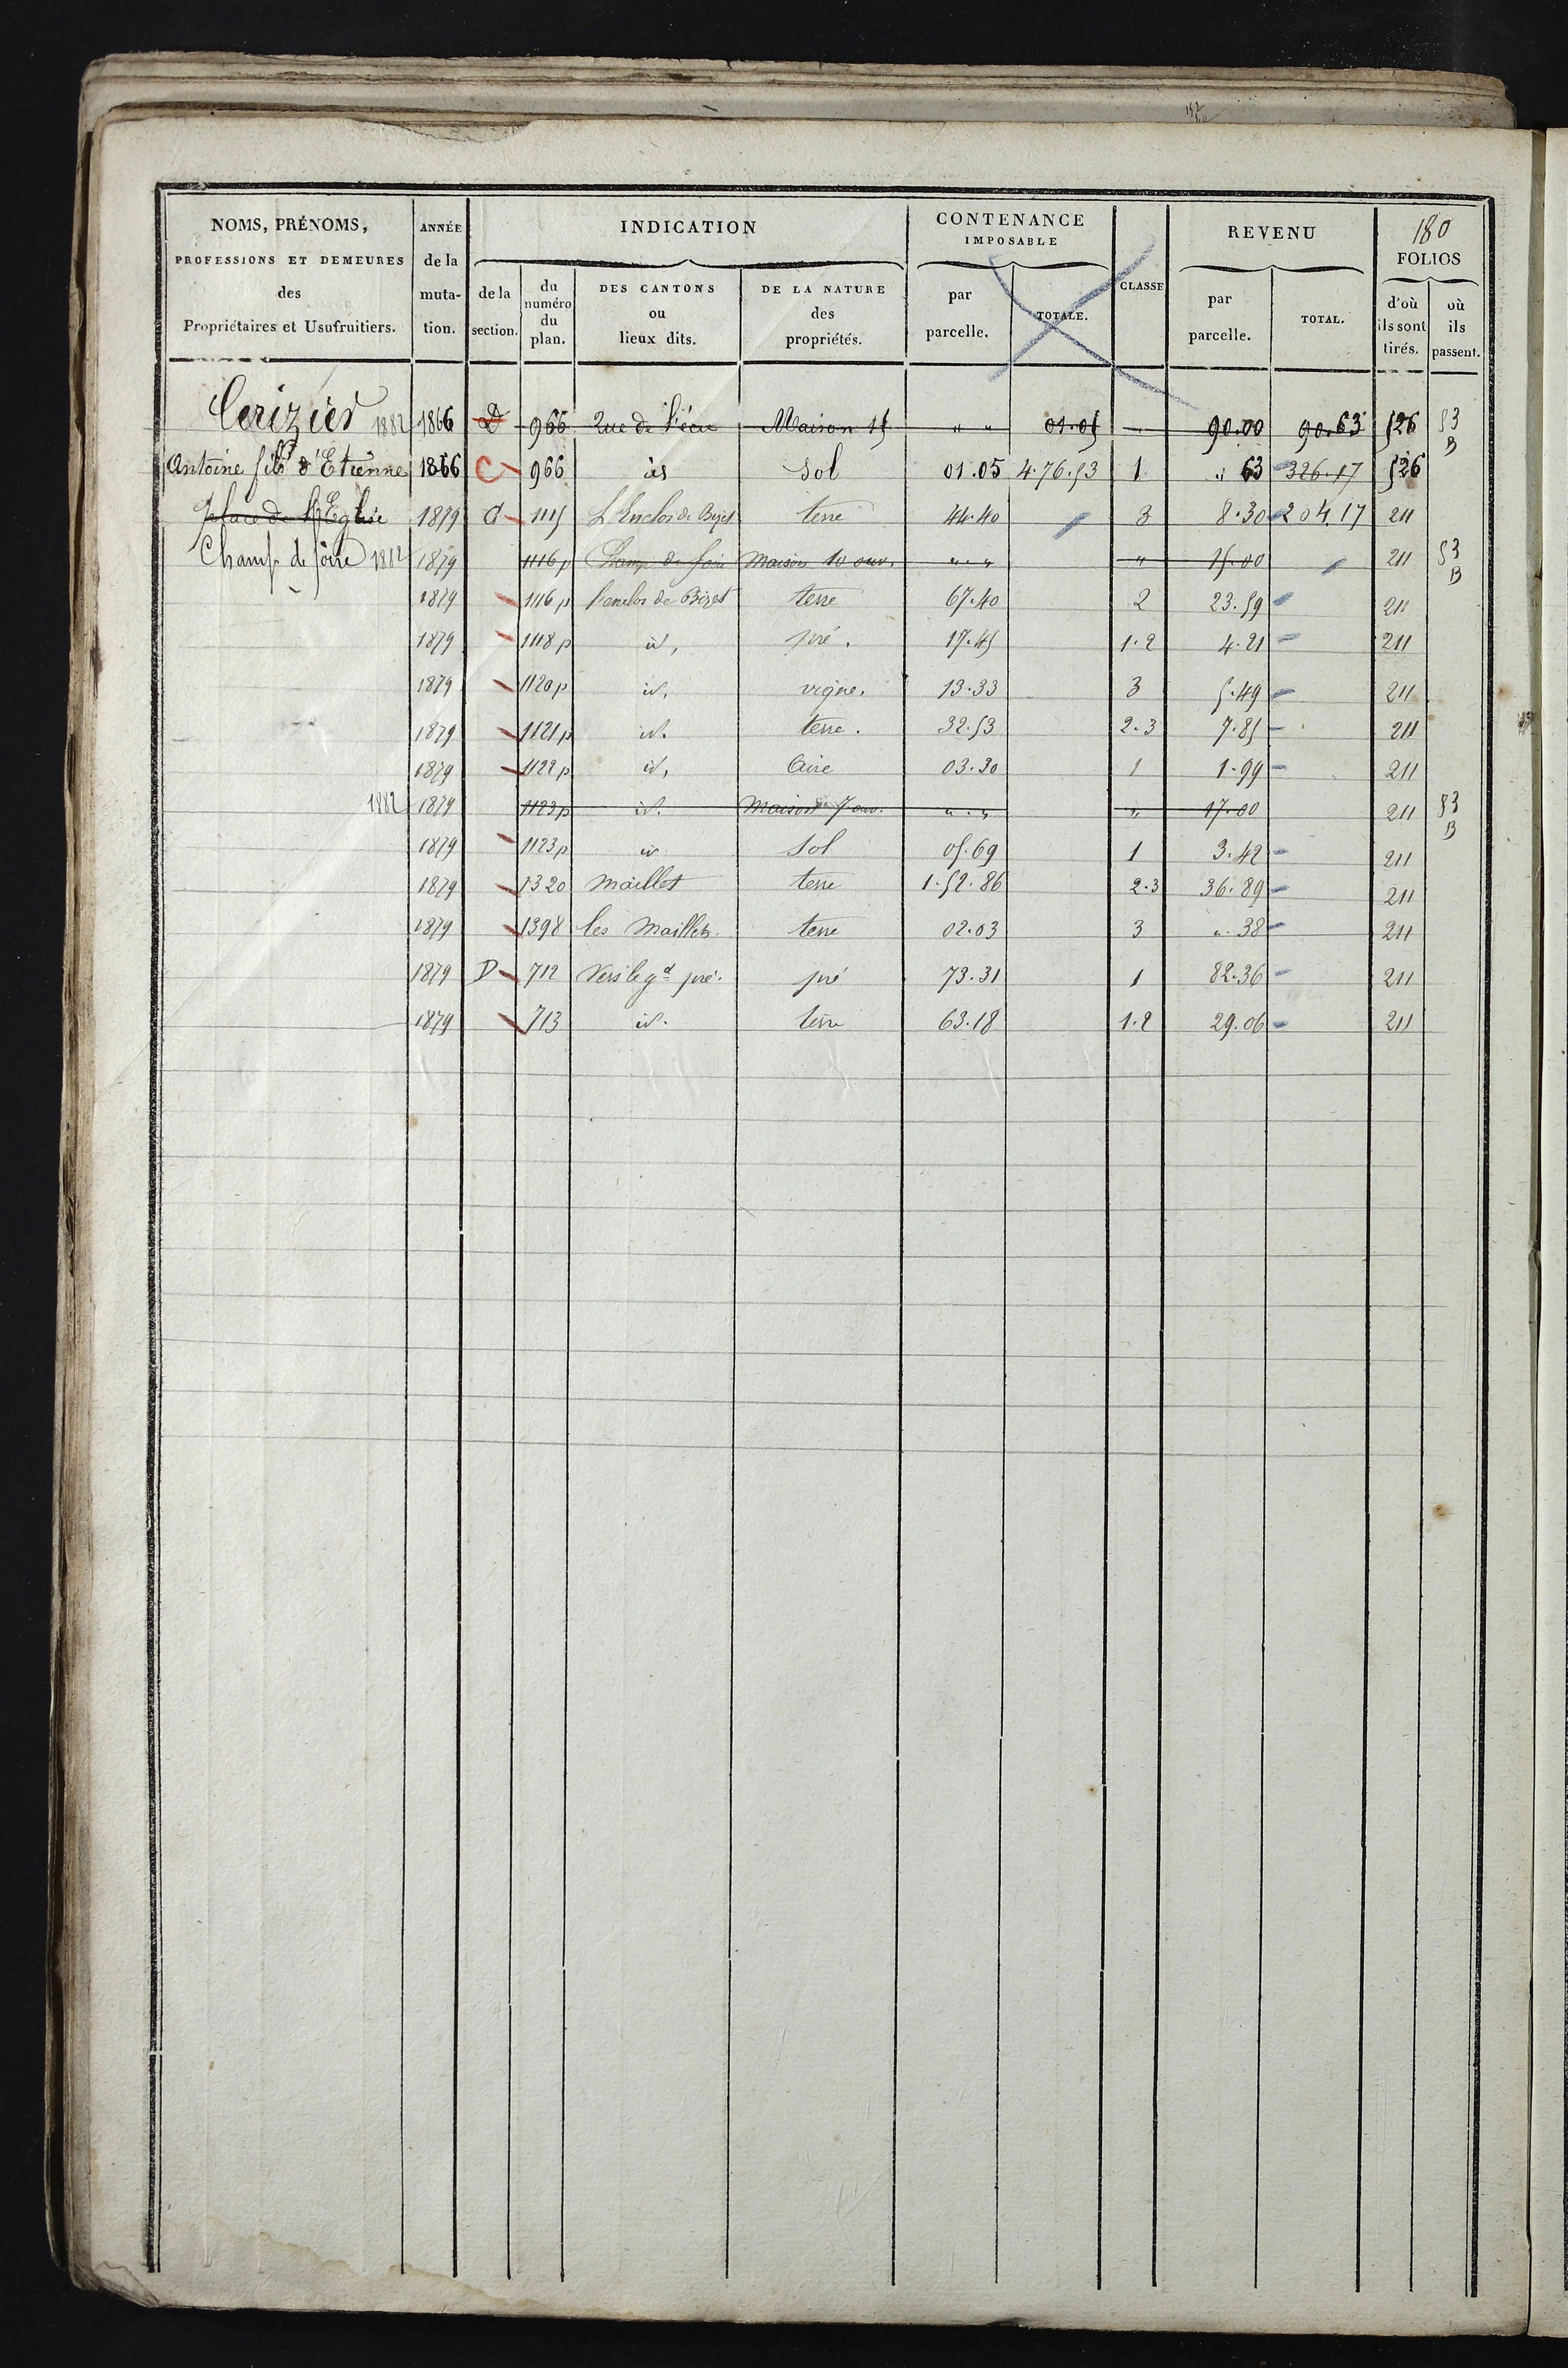 NOMS, PRÉNOMS, PROFESSIONS ET DEMEURES des Propriétaires et Usufruitiers.
ANNÉE de la mutation.
INDICATION
de la section.
du numéro du plan.
DES CANTONS ou lieux dits.
DE LA NATURE des propriétés.
CONTENANCE IMPOSABLE
par parcelle.
TOTALE.
CLASSE
REVENU
par parcelle.
TOTAL.
180
FOLIOS
d'où ils sont tirés.
où ils passent.
Cerizier 1882 1866 D 966 Rue de l'écu Maison 15 " " 01.05 " 90.00 90.63 526 53 B
Antoine fils d'Etienne 1866 C 966 id Sol 01.05 4.76.53 1 " 63 326.17 526
place de l'Eglise 1879 C 1115 L'Enclos de Bizet terre 44.40 3 8.30 204.17 211
Champ de foire 1882 1879 1116 p Champ de foire Maison 10 ouv. " " " 15.00 211 53 B
1879 1116 p l'enclos de Bizet terre 67.40 2 23.59 211
1879 1118 p id, pré. 17.45 1.2 4.21 211
1879 1120 p id, vigne. 13.33 3 5.49 211
1879 1121 p id. terre. 32.53 2.3 7.85 211
1879 1122 p id, Aire 03.30 1 1.99 211
1882 1879 1123 p id. Maison 7 ouv. " " " 17.00 211 53 B
1879 1123 p id Sol 05.69 1 3.42 211
1879 1320 Maillet terre 1.52.86 2.3 36.89 211
1879 1398 les Maillets terre 02.03 3 ". 38 211
1879 D 712 Vers le gd pré. pré 73.31 1 82.36 211
1879 713 id. terre 63.18 1.2 29.06 211